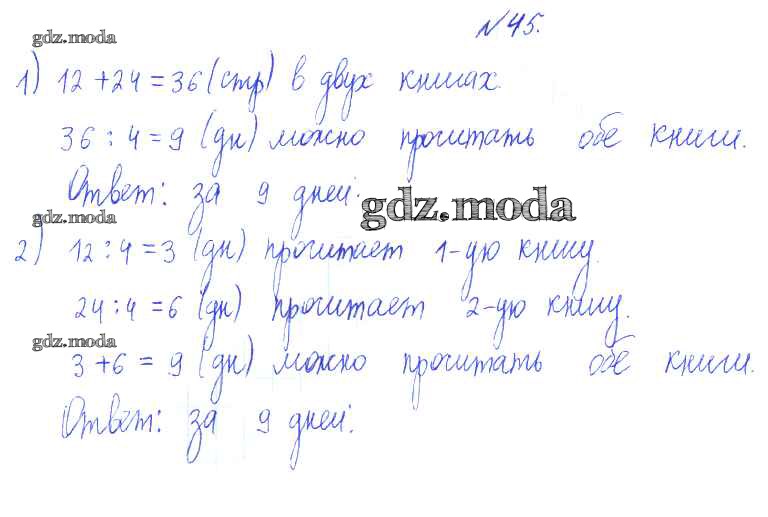 №45.
gdz.moda
1) 12+24=36(стр) в двух книгах.
36:4=9 (дн) можно прочитать обе книги.
Ответ: за 9 дней.
gdz.moda
gdz.moda
2) 12:4=3 (дн) прочитает 1-ую книгу.
24:4=6 (дн) прочитает 2-ую книгу.
gdz.moda
3+6=9 (дн) можно прочитать обе книги.
Ответ: за 9 дней.